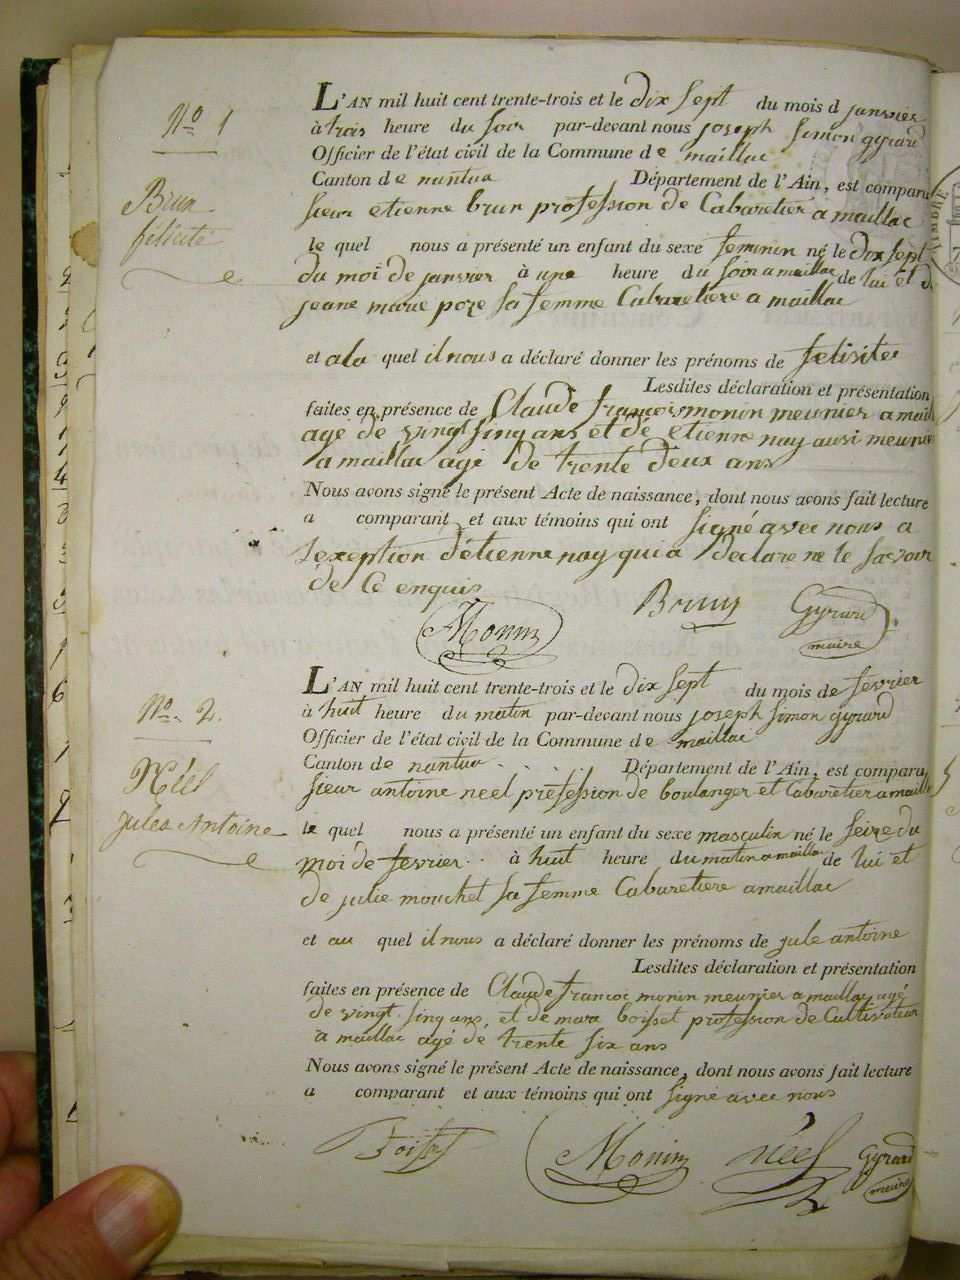 No 1
Brun
félicité
L'AN mil huit cent trente-trois et le dix sept du mois d janvier
à trois heure du soir par-devant nous joseph simon gyrard
Officier de l'état civil de la Commune de maillac
Canton de nantua Département de l'Ain, est comparu
sieur etienne brun profession de Cabaretier a maillac
le quel nous a présenté un enfant du sexe feminin né le dix sept
du moi de janvier à une heure du soir a maillac de lui et d
jeane marie poze sa femme Cabaretiere a maillac
et a la quel il nous a déclaré donner les prénoms de felisite
Lesdites déclaration et présentation
faites en présence de Claude françois monin meunier a mail
agé de vingt sing ans et de etienne nay ausi meunie
a maillac agé de trente deux ans
Nous avons signé le présent Acte de naissance, dont nous avons fait lecture
a comparant et aux témoins qui ont signé avec nous a
l'exeption d'étienne nay qui a declare ne le savoir
de Ce enquis
Brun Gyrard
Monin maire
No. 2.
Néel
Jules Antoine
L'AN mil huit cent trente-trois et le dix sept du mois de fevrier
à huit heure du matin par-devant nous joseph simon gyrard
Officier de l'état civil de la Commune de maillac
Canton de nantua Département de l'Ain, est comparu
sieur antoine neel profession de boulanger et Cabaretier a maill
le quel nous a présenté un enfant du sexe masculin né le seize du
moi de fevrier à huit heure du matin a maillac de lui et
de julie mouchet sa femme Cabaretiere a maillac
et au quel il nous a déclaré donner les prénoms de jule antoine
Lesdites déclaration et présentation
faites en présence de Claude françoi monin meunier a maillac agé
de vingt sing ans, et de marx boisset profession de Cultivateur
a maillac agé de trente six ans
Nous avons signé le présent Acte de naissance, dont nous avons fait lecture
a comparant et aux témoins qui ont signé avec nous
Monin néel Gyrard
maire